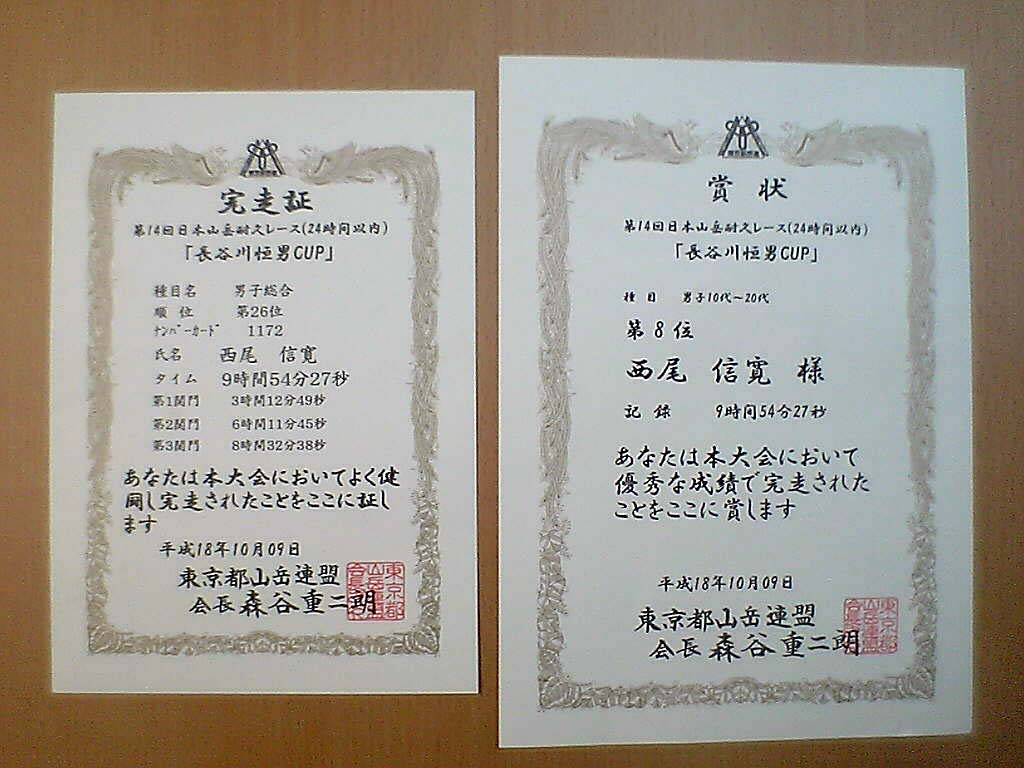 完走証
第14回日本山岳耐久レース(24時間以内)
「長谷川恒男CUP」
種目名 男子総合
順 位 第26位
ナンバーカード 1172
氏名 西尾 信寛
タイム 9時間54分27秒
第1関門 3時間12分49秒
第2関門 6時間11分45秒
第3関門 8時間32分38秒
あなたは本大会においてよく健
闘し完走されたことをここに証し
ます
平成18年10月09日
東京都山岳連盟
会長 森谷重二朗
賞 状
第14回日本山岳耐久レース(24時間以内)
「長谷川恒男CUP」
種 目 男子10代~20代
第 8 位
西尾 信寛 様
記 録 9時間54分27秒
あなたは本大会において
優秀な成績で完走された
ことをここに賞します
平成18年10月09日
東京都山岳連盟
会長 森谷重二朗